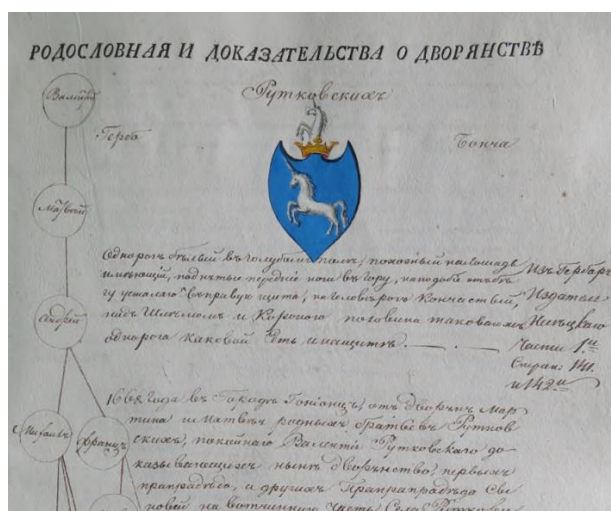 РОДОСЛОВНАЯ И ДОКАЗАТЕЛЬСТВА О ДВОРЯНСТВѢ
Рутковскихъ
Гербъ
Бонча
Матвей
Андрей
Михаилъ
Францъ
Однорогъ бѣлый въ голубомъ полѣ, похожный на лошадь
имѣющий, поднятые передніе ноги въ гору, на подобіе отъ бѣ
гу въ правую щита, на головѣ рогъ Кончастый,
надъ Шлемомъ и Короною половина таковаго жъ
однорога каковой есть и на щитѣ.
Изъ Гербаря
Издателя
Несѣцкаго
Части 1.й
Стран: 141.
и 142.й
1668 года въ Городѣ Гоніонцѣ, отъ дворянъ Мар
тина и Матвея родныхъ братьевъ Рутков
скихъ, покойнаго Валентія Рутковскаго до
казывающихъ нынѣ дворянство, первыхъ
прапрадѣда, и другихъ Прапрапрадѣда Сы
новей на вотчинную Часть Села Рутковск